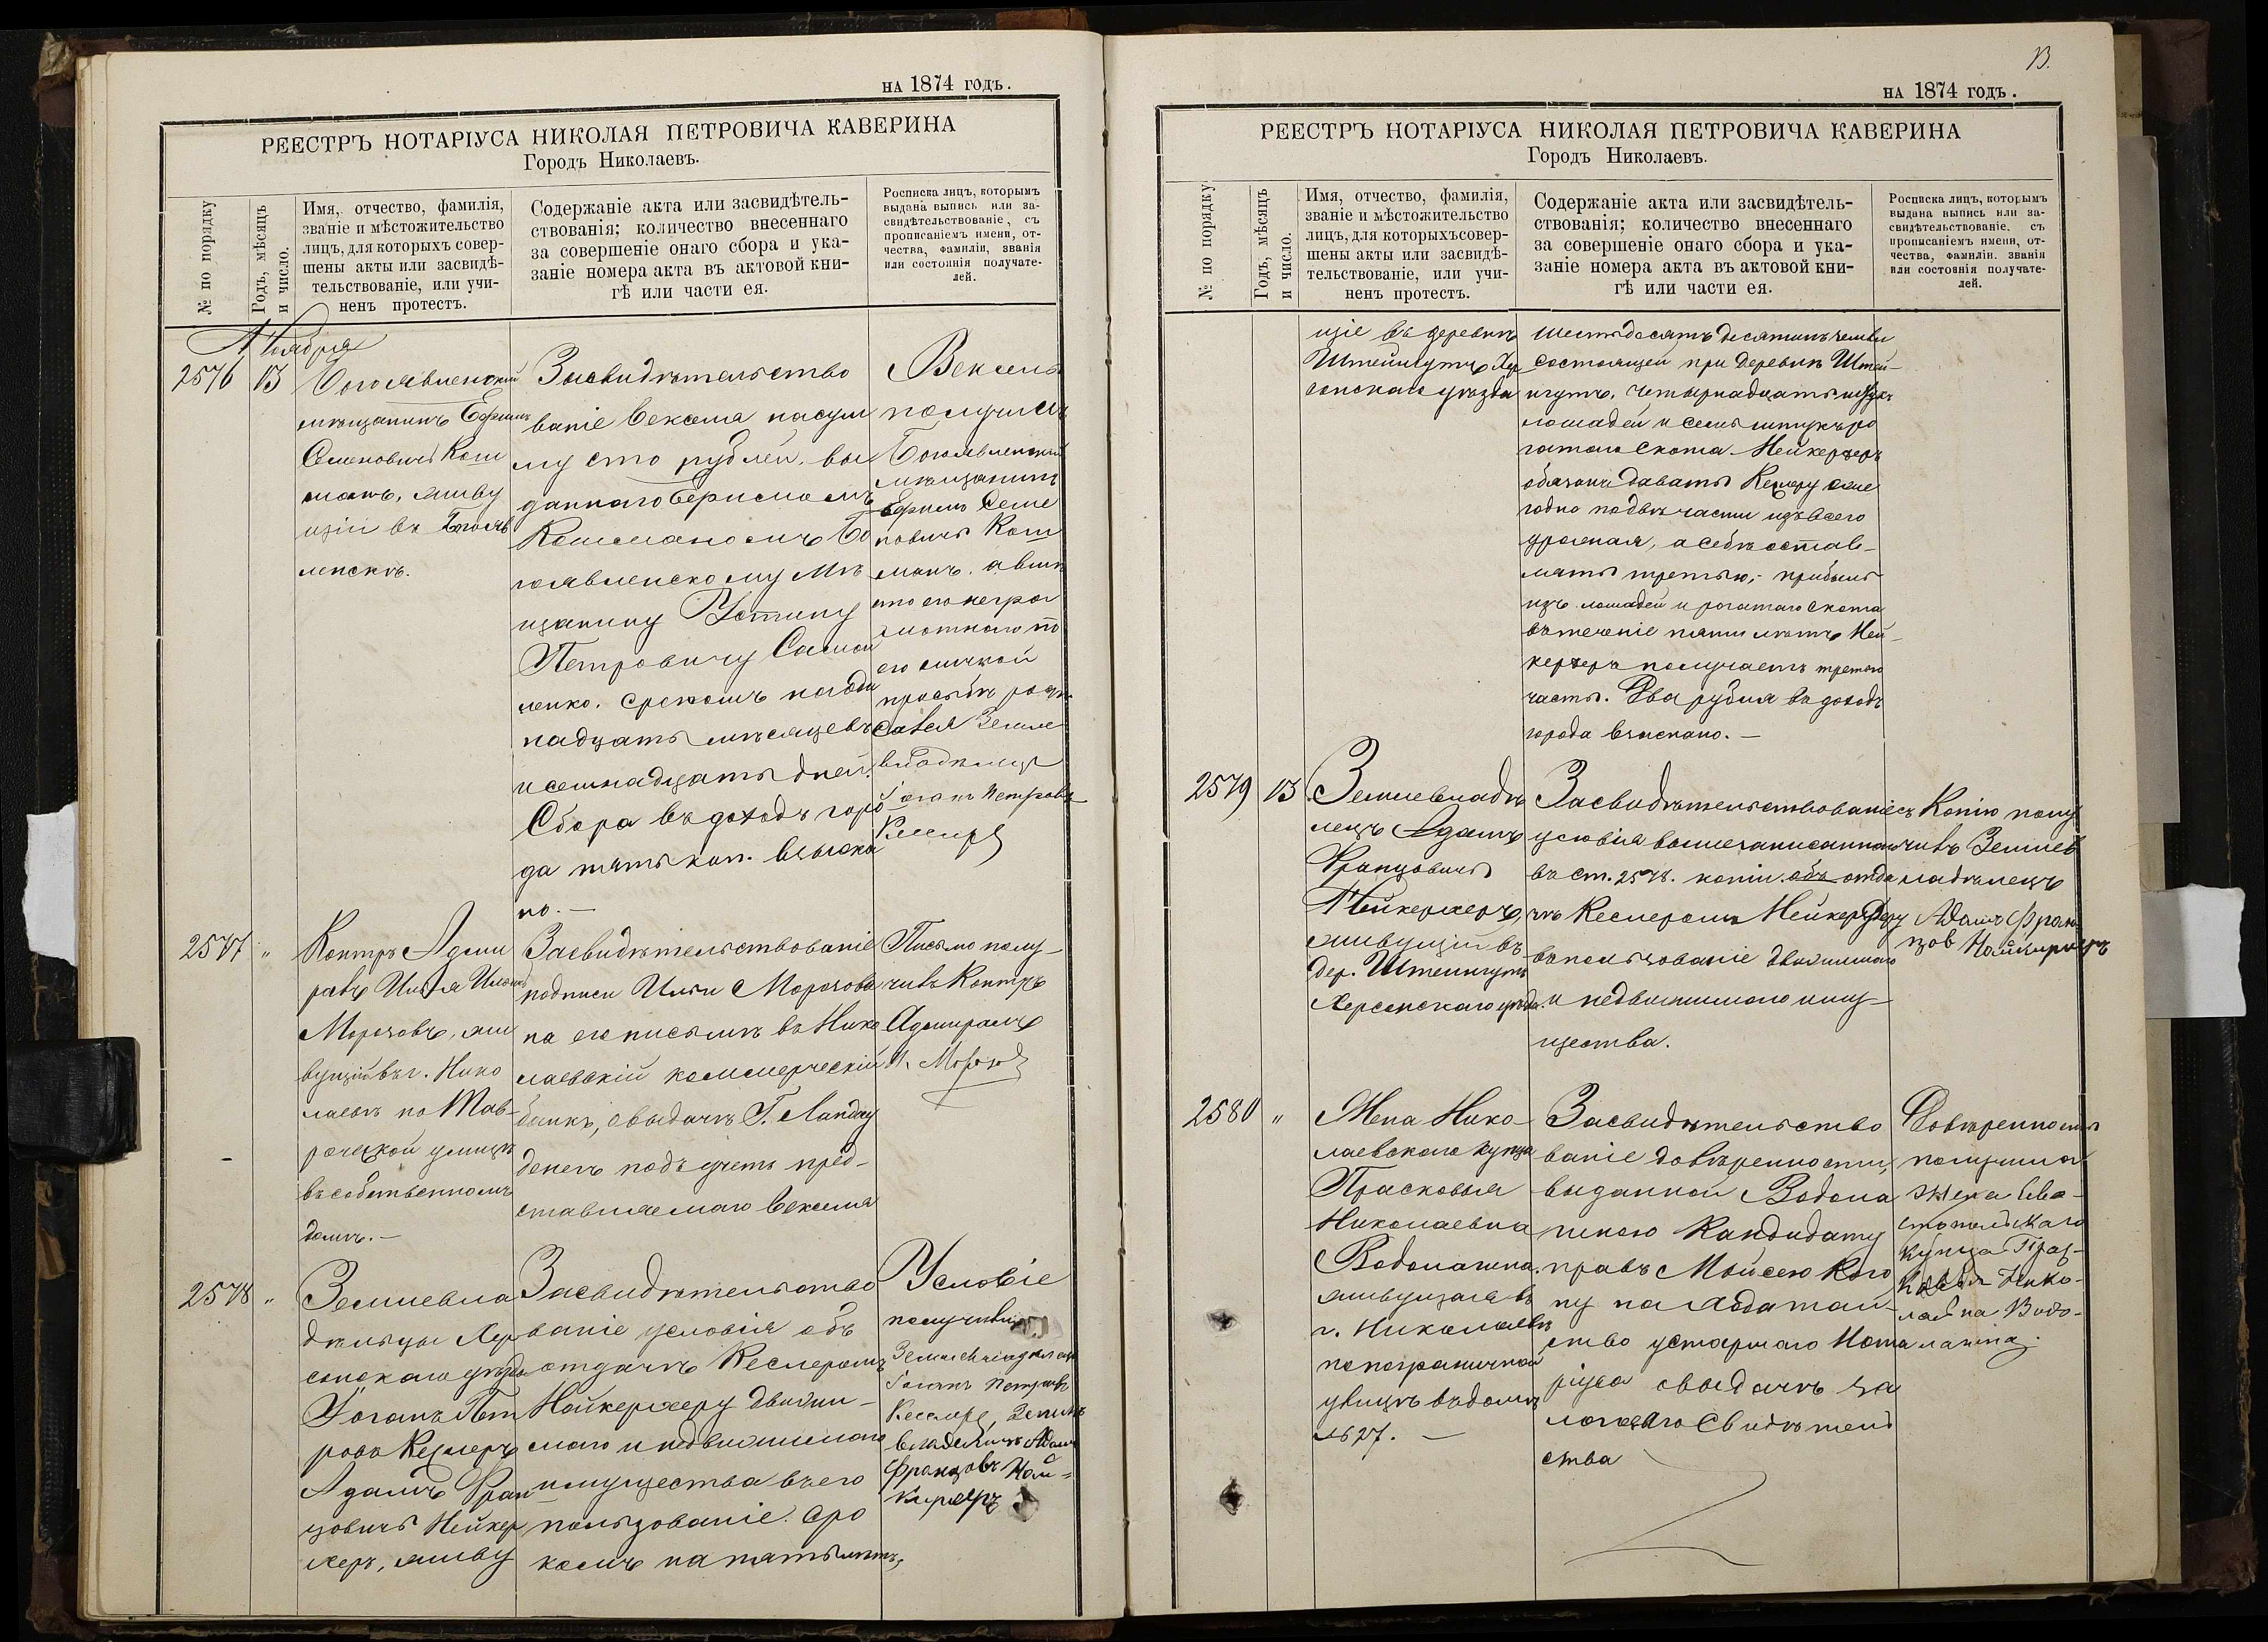 на 1874 годъ.
РЕЕСТРЪ НОТАРІУСА НИКОЛАЯ ПЕТРОВИЧА КАВЕРИНА
Городъ Николаевъ.
№ по порядку
Годъ, мѣсяцъ
и число.
Имя, отчество, фамилія,
званіе и мѣстожительство
лицъ, для которыхъ совер-
шены акты или засвидѣ-
тельствованіе, или учи-
ненъ протестъ.
Содержаніе акта или засвидѣтель-
ствованія; количество внесеннаго
за совершеніе онаго сбора и ука-
заніе номера акта въ актовой кни-
гѣ или части ея.
Росписка лицъ, которымъ
выдана выпись или за-
свидѣтельствованіе, съ
прописаніемъ имени, от-
чества, фамиліи, званія
или состоянія получате-
лей.
Ноября
2576
13
Богоявленскій
мѣщанинъ Ефимъ
Семеновичъ Кош
манъ, живу
щій въ Богояв
ленскѣ.
Засвидѣтельство
ваніе векселя на сум
му сто рублей, вы
даннаго Ефимомъ
Кошманомъ Бо
гоявленскому мѣ
щанину Устину
Петровичу Самой
ленко, срокомъ на оди
надцать мѣсяцевъ
и семнадцать дней.
Сбора въ доходъ горо
да пять коп. взыска
но. —
Вексель
получилъ
Богоявленскій
мѣщанинъ
Ефимъ Семе
новичъ Кош
манъ, а вмѣ
сто его негра
мотнаго по
его личной
просьбѣ роспи
сался Земле
владѣлецъ
Іоганъ Петровъ
Кеслеръ
2577
"
Контръ Адми
ралъ Илья Ильичъ
Морозовъ, жи
вущій въ г. Нико
лаевѣ по Тав-
рической улицѣ
въ собственномъ
домѣ. —
Засвидѣтельствованіе
подписи Ильи Морозова
на его письмѣ въ Нико
лаевскій коммерческій
банкъ, о выдачѣ Г. Ландау
денегъ подъ учетъ пред-
ставляемаго векселя
Письмо полу-
чилъ Контръ
Адмиралъ
И. Морозовъ
2578
"
Землевла
дѣльцы Хер
сонскаго уѣзда
Іоганъ Пет
ровъ Кеслеръ
Адамъ Фран
цовичъ Нейкер
херъ, живу
Засвидѣтельство
ваніе условія объ
отдачѣ Кеслеромъ
Нейкерхеру движи-
маго и недвижимаго
имущества въ его
пользованіе. Сро
комъ на пять лѣтъ,
Условіе
получили
Землевладѣлецъ
Іоганъ Петровъ
Кеслеръ, Земле
владелецъ Адамъ
Францовъ Ной-
кирхеръ
13.
на 1874 годъ.
РЕЕСТРЪ НОТАРІУСА НИКОЛАЯ ПЕТРОВИЧА КАВЕРИНА
Городъ Николаевъ.
№ по порядку
Годъ, мѣсяцъ
и число.
Имя, отчество, фамилія,
званіе и мѣстожительство
лицъ, для которыхъ совер-
шены акты или засвидѣ-
тельствованіе, или учи-
ненъ протестъ.
Содержаніе акта или засвидѣтель-
ствованія; количество внесеннаго
за совершеніе онаго сбора и ука-
заніе номера акта въ актовой кни-
гѣ или части ея.
Росписка лицъ, которымъ
выдана выпись или за-
свидѣтельствованіе, съ
прописаніемъ имени, от-
чества, фамиліи, званія
или состоянія получате-
лей.
щіе въ деревнѣ
Штейнгутъ Хер
сонскаго уѣзда
шестьдесятъ десятинъ земли
состоящей при деревнѣ Штей-
нгутъ, четырнадцать штукъ
лошадей и семь штукъ ро
гатаго скота. Нейкерхеръ
обязанъ давать Кеслеру еже
годно по двѣ части изъ всего
урожая, а себѣ остав-
лять третью; прибыль
изъ лошадей и рогатаго скота
въ теченіе пяти лѣтъ Ней-
керхеръ получаетъ третью
часть. Два рубля въ доходъ
города взыскано. —
2579
13
Землевладѣ
лецъ Адамъ
Францовичъ
Нейкерхеръ,
живущій въ
дер. Штейнгутъ
Херсонскаго уѣзда.
Засвидѣтельствованіе съ
условія вышезаписаннаго
въ ст. 2578. копіи объ отда
чѣ Кеслеромъ Нейкерхеру
въ пользованіе движимаго
и недвижимаго иму-
щества.
Копію полу
чилъ Землев
ладѣлецъ
Адамъ Фран
цов Нойкирхеръ
2580
"
Жена Нико-
лаевскаго купца
Прасковья
Николаевна
Водолагина,
живущая въ
г. Николаевѣ
по пограничной
улицѣ въ домѣ
№ 27. —
Засвидѣтельство
ваніе довѣренности,
выданной Водола
гиною Кандидату
правъ Мойсею Кого
ну на ходатай-
ство у старшаго Нота
ріуса о выдачѣ за
логоваго Свидѣтель
ства
Довѣренность
получила
жена Сева-
стопольскаго
купца Прас-
ковья Нико-
лавна Водо-
лагина.